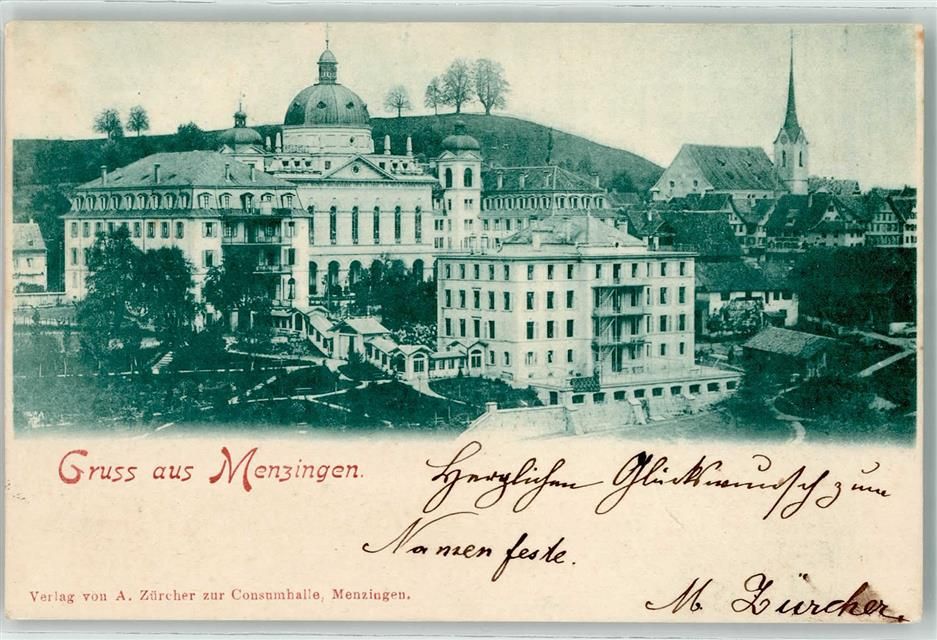 Gruss aus Menzingen.
Herzlichen Glückswunsch zum
Namensfeste.
Verlag von A. Zürcher zur Consumhalle, Menzingen.
M. Zürcher.